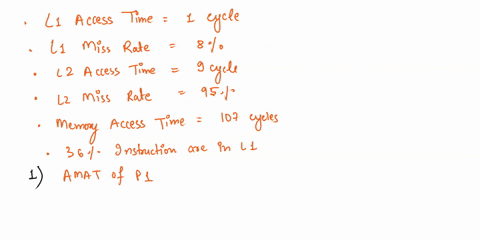 • L1 Access Time = 1 cycle
• L1 Miss Rate = 8%
• L2 Access Time = 9 cycle
• L2 Miss Rate = 95%
• Memory Access Time = 107 cycles
• 36% Instruction are in L1
1) AMAT of P1